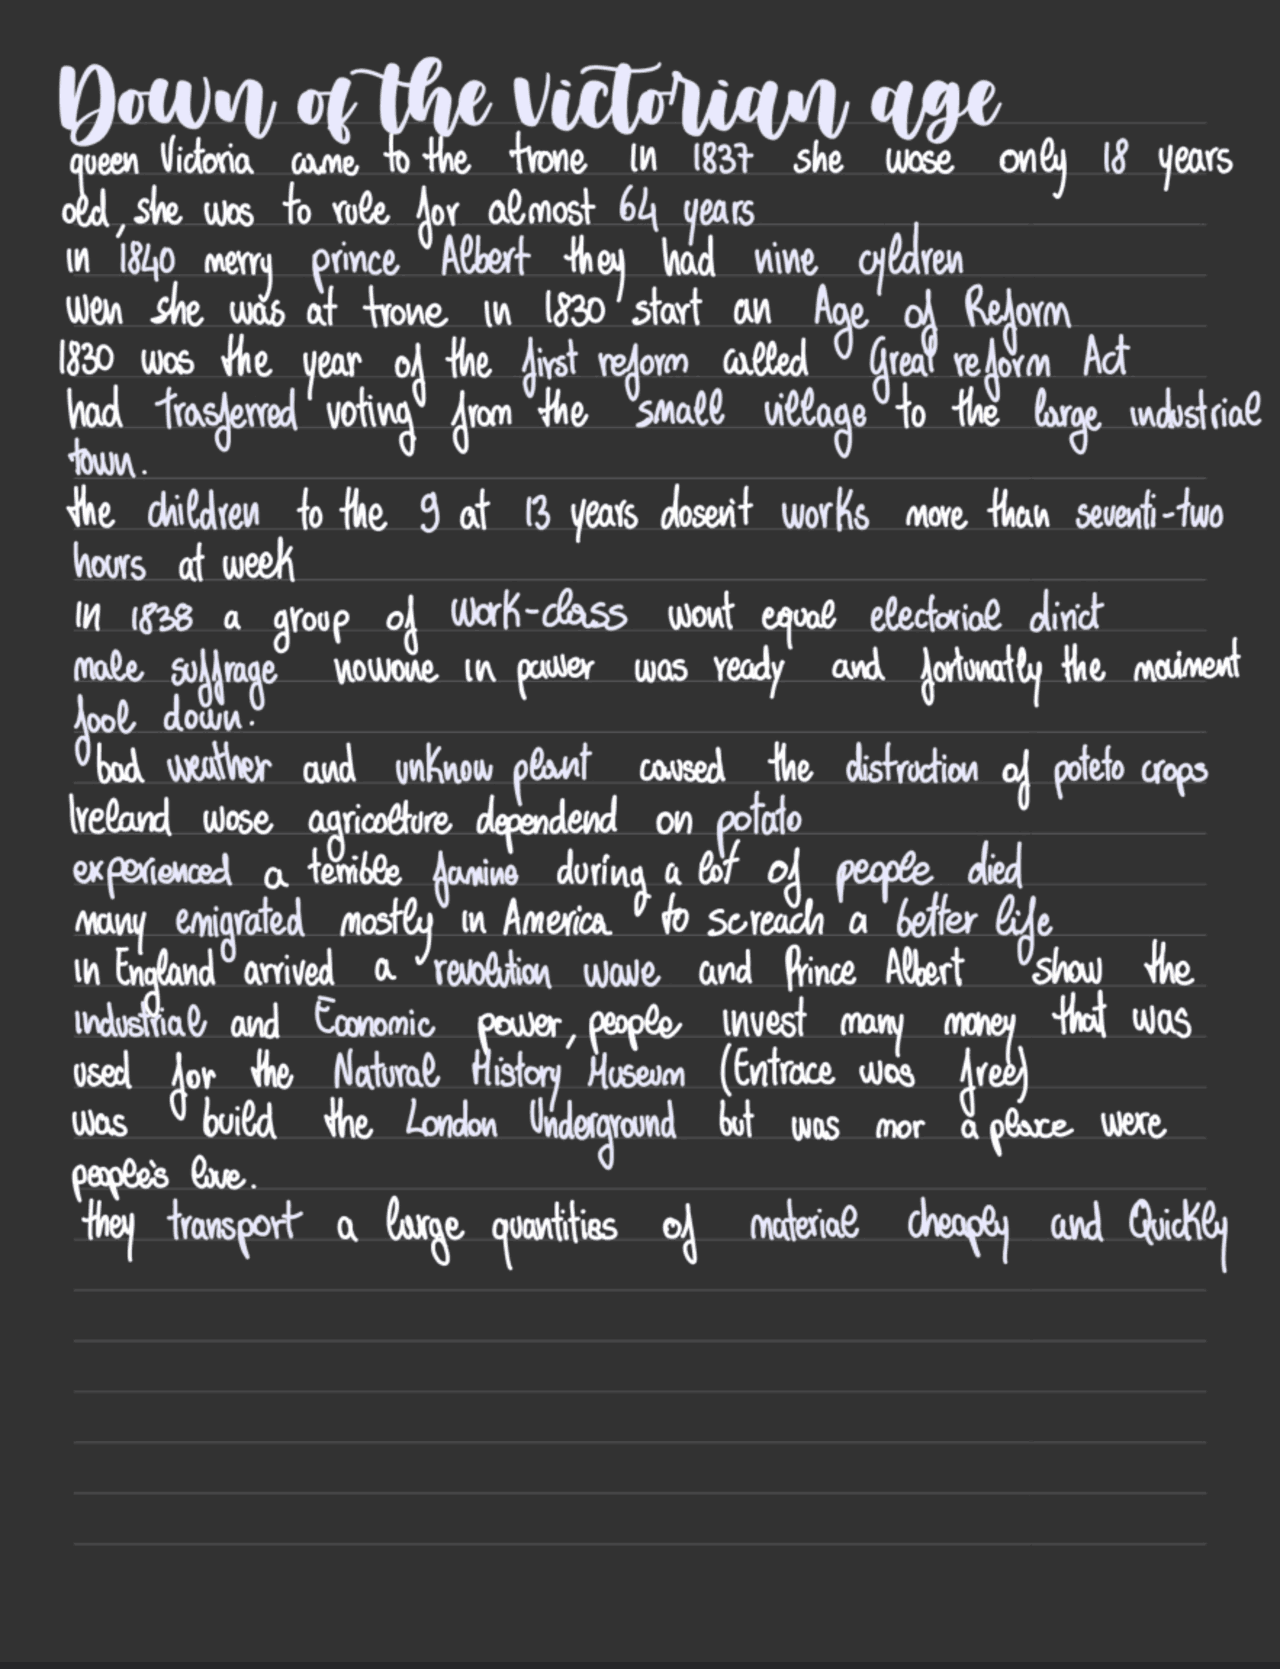 Down of the Victorian age
queen Victoria came to the trone in 1837 she wose only 18 years
old, she was to rule for almost 64 years
in 1840 merry prince Albert they had nine cyldren
wen she was at trone in 1830 start an Age of Reform
1830 was the year of the first reform called Great reform Act
had trasferred voting from the small village to the large industrial
town.
the children to the 9 at 13 years dosen't works more than seventi-two
hours at week
in 1838 a group of work-class wont equal electorial dirict
male suffrage nowone in power was ready and fortunatly the moiment
fool down.
bad weather and unknow plant caused the distruction of poteto crops
Ireland wose agricolture dependend on potato
experienced a terrible famine during a lot of people died
many emigrated mostly in America to screach a better life
in England arrived a revolution wave and Prince Albert show the
industrial and Economic power, people invest many money that was
used for the Natural History Museum (Entrace was free)
was build the London Underground but was mor a place were
people's live.
they transport a large quantities of material cheaply and Quickly